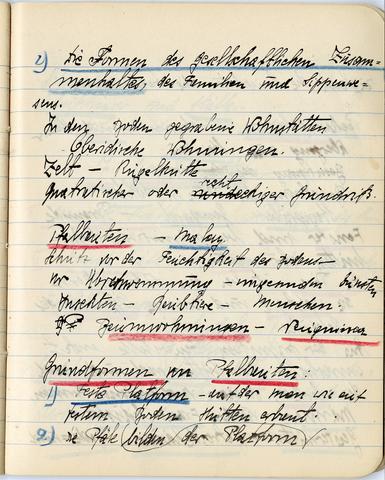 2) Die Formen des gesellschaftlichen Zusam-
menhaltes, des Familien und Sippenwe-
sens.
In den Boden gegrabene Wohnstätten
Oberirdische Wohnungen.
Zelt – Kugelhütte
Quatratischer oder recht eckiger Grundriß.
Pfalbauten –
Schutz vor der Feuchtigkeit des Bodens
vor Überschwemmung –
Insekten – Raubtiere – Menschen.
Baumwohnungen –
Grundformen von Pfalbauten:
1) Feste Platform – auf der man wie auf
festem Boden Hütten erbaut
2) die Pfäle bilden der Platform